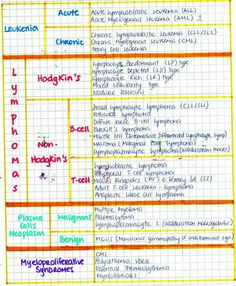 Leukemia
Acute
Acute Lymphoblastic Leukemia (ALL)
Acute Myelogenous Leukemia (AML)
Chronic
Chronic Lymphoblastic Leukemia (CLL/SLL)
Chronic Myelogenous Leukemia (CML)
Hairy Cell Leukemia
Lymphomas
Hodgkin's
Lymphocyte Predominant (LP) Type
Lymphocyte Depleted (LD) Type
Lymphocyte Rich (LR) Type
Mixed Cellularity Type
Nodular Sclerosis
Non-
Hodgkin's
B-cell
Small Lymphocytic Lymphoma (CLL/SLL)
Follicular Lymphoma
Diffuse Large B-cell Lymphoma
Burkitt's Lymphoma
Mantle Cell Lymphoma
Marginal Zone Lymphoma
Lymphoplasmacytic Lymphoma
T-cell
Lymphoblastic Lymphoma
Peripheral T-cell Lymphoma
Mycosis Fungoides
Adult T-cell Leukemia - Lymphoma
Anaplastic Large Cell Lymphoma
Plasma
Cells
Neoplasm
Malignant
Multiple Myeloma
Plasmacytoma
Lymphoplasmacytic Lymphoma
Benign
MGUS (Monoclonal gammopathy of undetermined sign)
Myeloproliferative
Syndromes
CML
Polycythemia Vera
Essential Thrombocytosis
Myelofibrosis